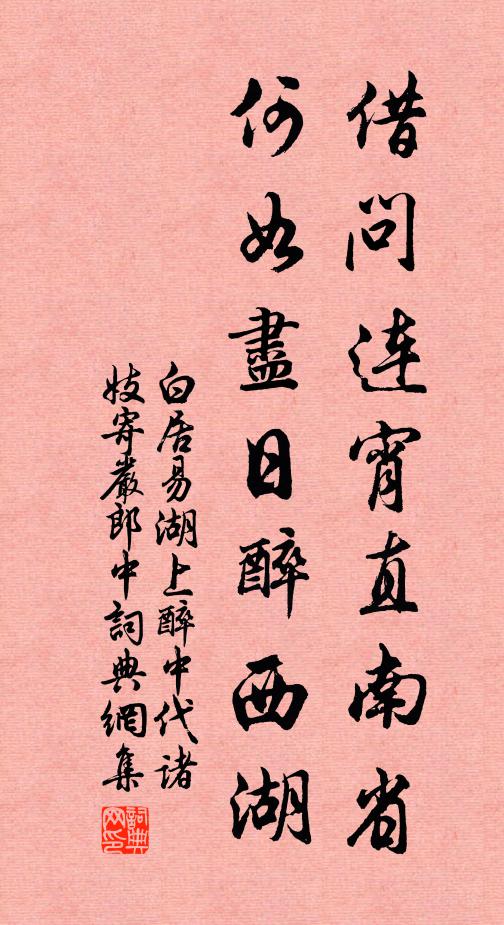 借问连宵直南省
何如盡日醉西湖
白居易湖上醉中代诸
妓寄嚴郎中詞典網集
詞典
网印